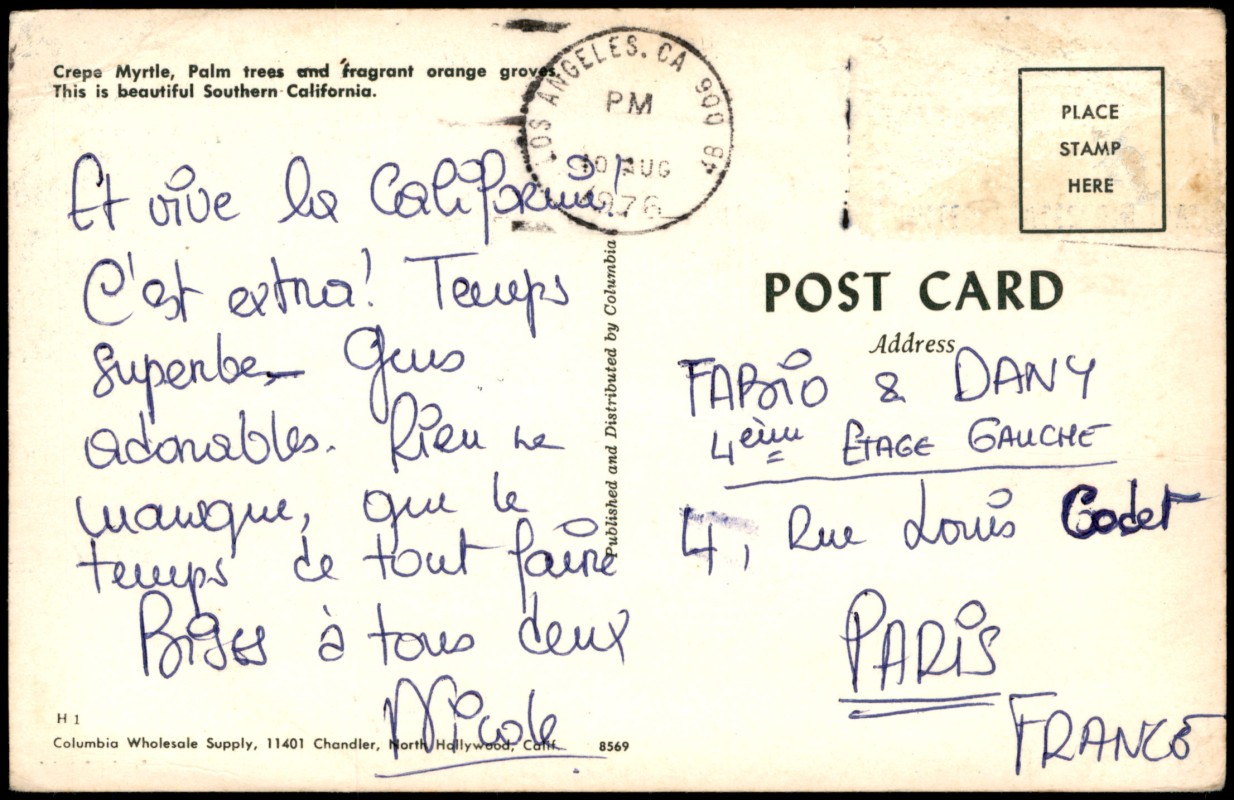 Crepe Myrtle, Palm trees and fragrant orange groves.
This is beautiful Southern California.
LOS ANGELES, CA 900
PM
10 AUG
1976
4B
Et vive la Californie!
C'est extra! Temps
superbe - Gens
adorables. Rien ne
manque, que le
temps de tout faire
Bises à tous deux
Nicole
H 1
Columbia Wholesale Supply, 11401 Chandler, North Hollywood, Calif.
8569
Published and Distributed by Columbia
PLACE
STAMP
HERE
POST CARD
Address
FABIO & DANY
4ème ETAGE GAUCHE
4, Rue Louis Codet
PARIS
FRANCE